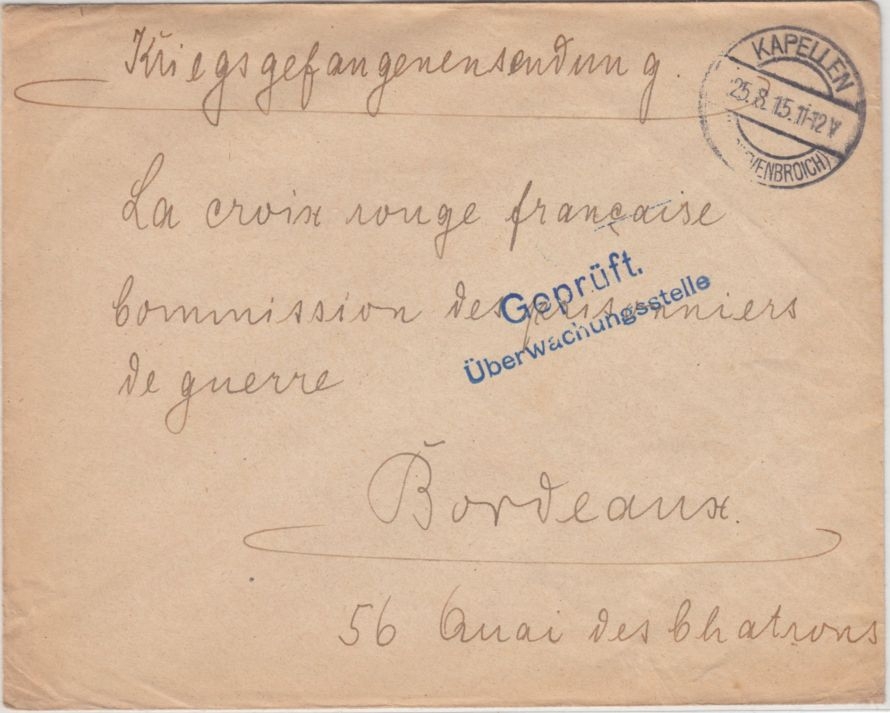 Kriegsgefangenensendung.
KAPELLEN
25.8.15.11-12V
(GREVENBROICH)
La croix rouge française
Geprüft.
Commission des prisonniers
Überwachungsstelle
de guerre
Bordeaux.
56 Quai des Chatrons